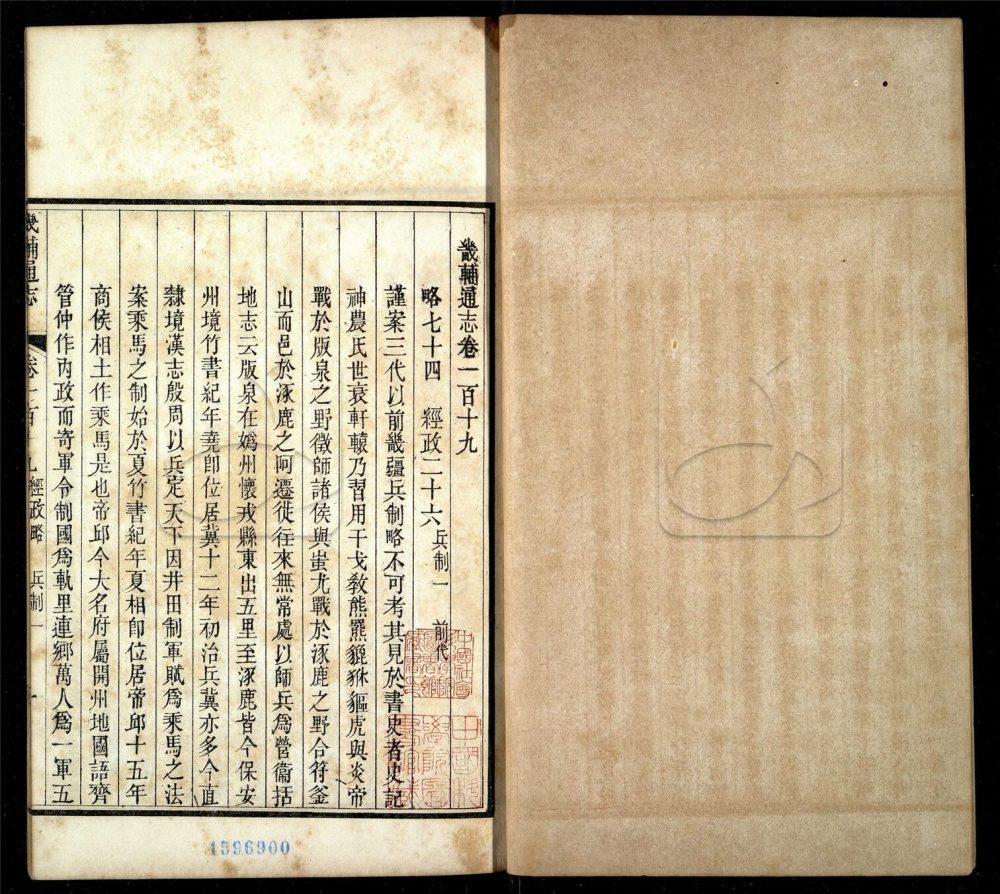 畿輔通志卷一百十九
略七十四 經政二十六 兵制一 前代
謹案三代以前畿疆兵制略不可考其見於書史者史記
神農氏世衰軒轅乃習用干戈教熊羆貔貅貙虎與炎帝
戰於版泉之野徵師諸侯與蚩尤戰於涿鹿之野合符釜
山而邑於涿鹿之阿遷徙往來無常處以師兵爲營衞括
地志云版泉在嬀州懷戎縣東出五里至涿鹿皆今保安
州境竹書紀年堯卽位居冀十二年初治兵冀亦多今直
隸境漢志殷周以兵定天下因井田制軍賦爲乘馬之法
案乘馬之制始於夏竹書紀年夏相卽位居帝邱十五年
商侯相土作乘馬是也帝邱今大名府屬開州地國語齊
管仲作內政而寄軍令制國爲軌里連鄉萬人爲一軍五
畿輔通志 卷一百十九 經政略 兵制一 一
1596900